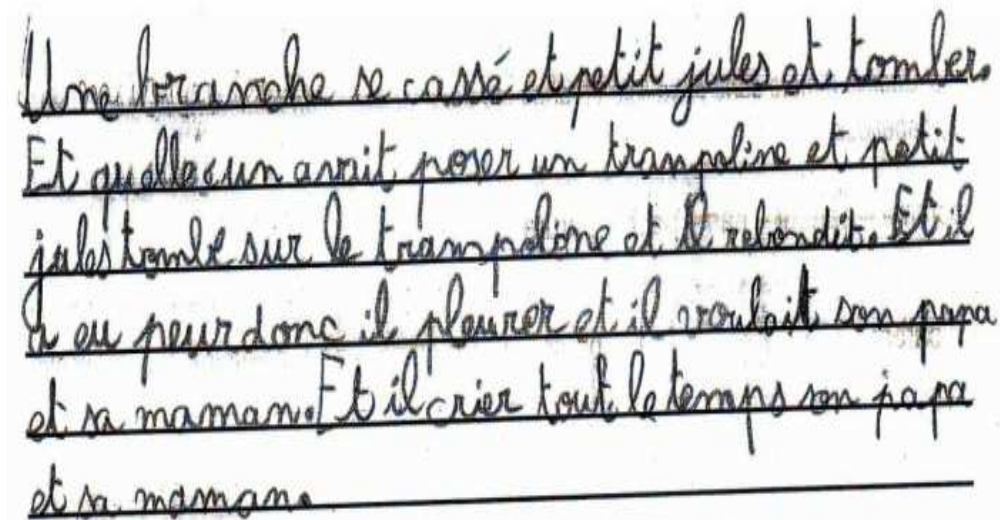 Une branche se cassé et petit jules et tomber.
Et quellecun avait poser un trampoline et petit
jules tombe sur le trampoline et il rebondit. Et il
a eu peur donc il pleurer et il voulait son papa
et sa maman. Et il crier tout le temps son papa
et sa maman.